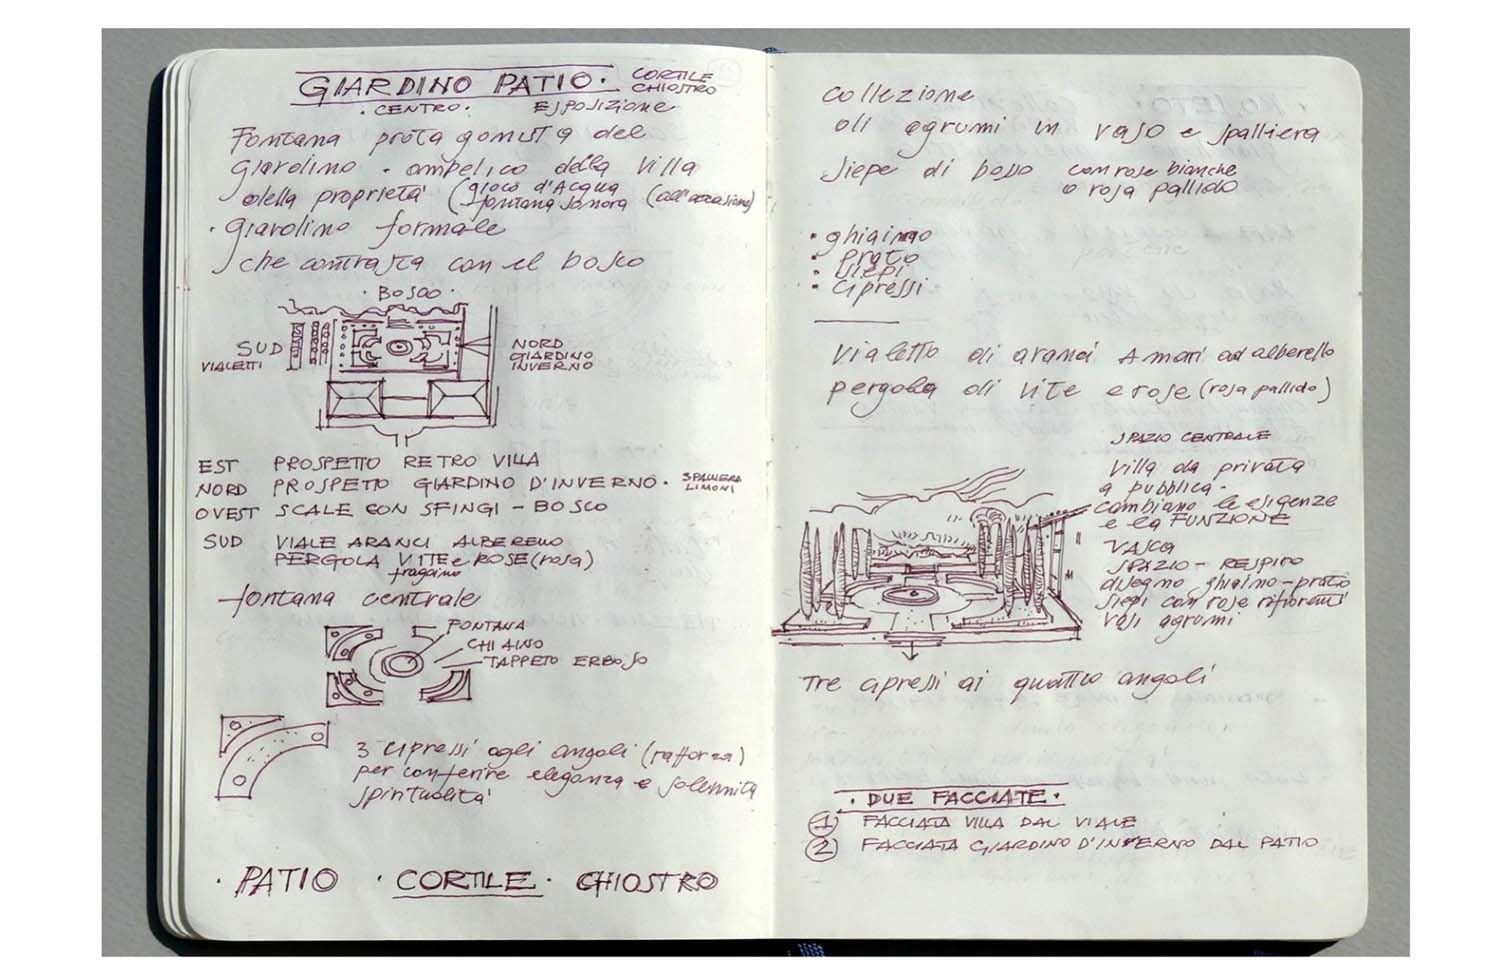 GIARDINO PATIO · CORTILE
CHIOSTRO
· CENTRO · ESPOSIZIONE
Fontana protagonista del
Giardino · ampelico della Villa
della proprietà (gioco d'Acqua
fontana sonora (all'occasione)
· Giardino formale
che contrasta con il bosco
· BOSCO ·
SUD
VIALETTI
NORD
GIARDINO
INVERNO
EST PROSPETTO RETRO VILLA
NORD PROSPETTO GIARDINO D'INVERNO · SPALLIERA
LIMONI
OVEST SCALE CON SFINGI - BOSCO
SUD VIALE ARANCI ALBERELLO
PERGOLA VITE e ROSE (rosa)
fragoino
fontana centrale
FONTANA
CHIAINO
TAPPETO ERBOSO
3 cipressi agli angoli (rafforza)
per conferire eleganza e solennità
spiritualità
· PATIO · CORTILE · CHIOSTRO
collezione
di agrumi in vaso e spalliera
siepe di bosso con rose bianche
o rosa pallido
· ghiaino
· prato
· siepi
· cipressi
Vialetto di aranci Amari ad alberello
pergola di vite e rose (rosa pallido)
SPAZIO CENTRALE
Villa da privata
a pubblica ·
cambiano le esigenze
e la FUNZIONE
VASCA
SPAZIO - RESPIRO
disegno ghiaino - prato
siepi con rose rifiorenti
vasi agrumi
Tre cipressi ai quattro angoli
· DUE FACCIATE ·
1 FACCIATA VILLA DAL VIALE
2 FACCIATA GIARDINO D'INVERNO DAL PATIO